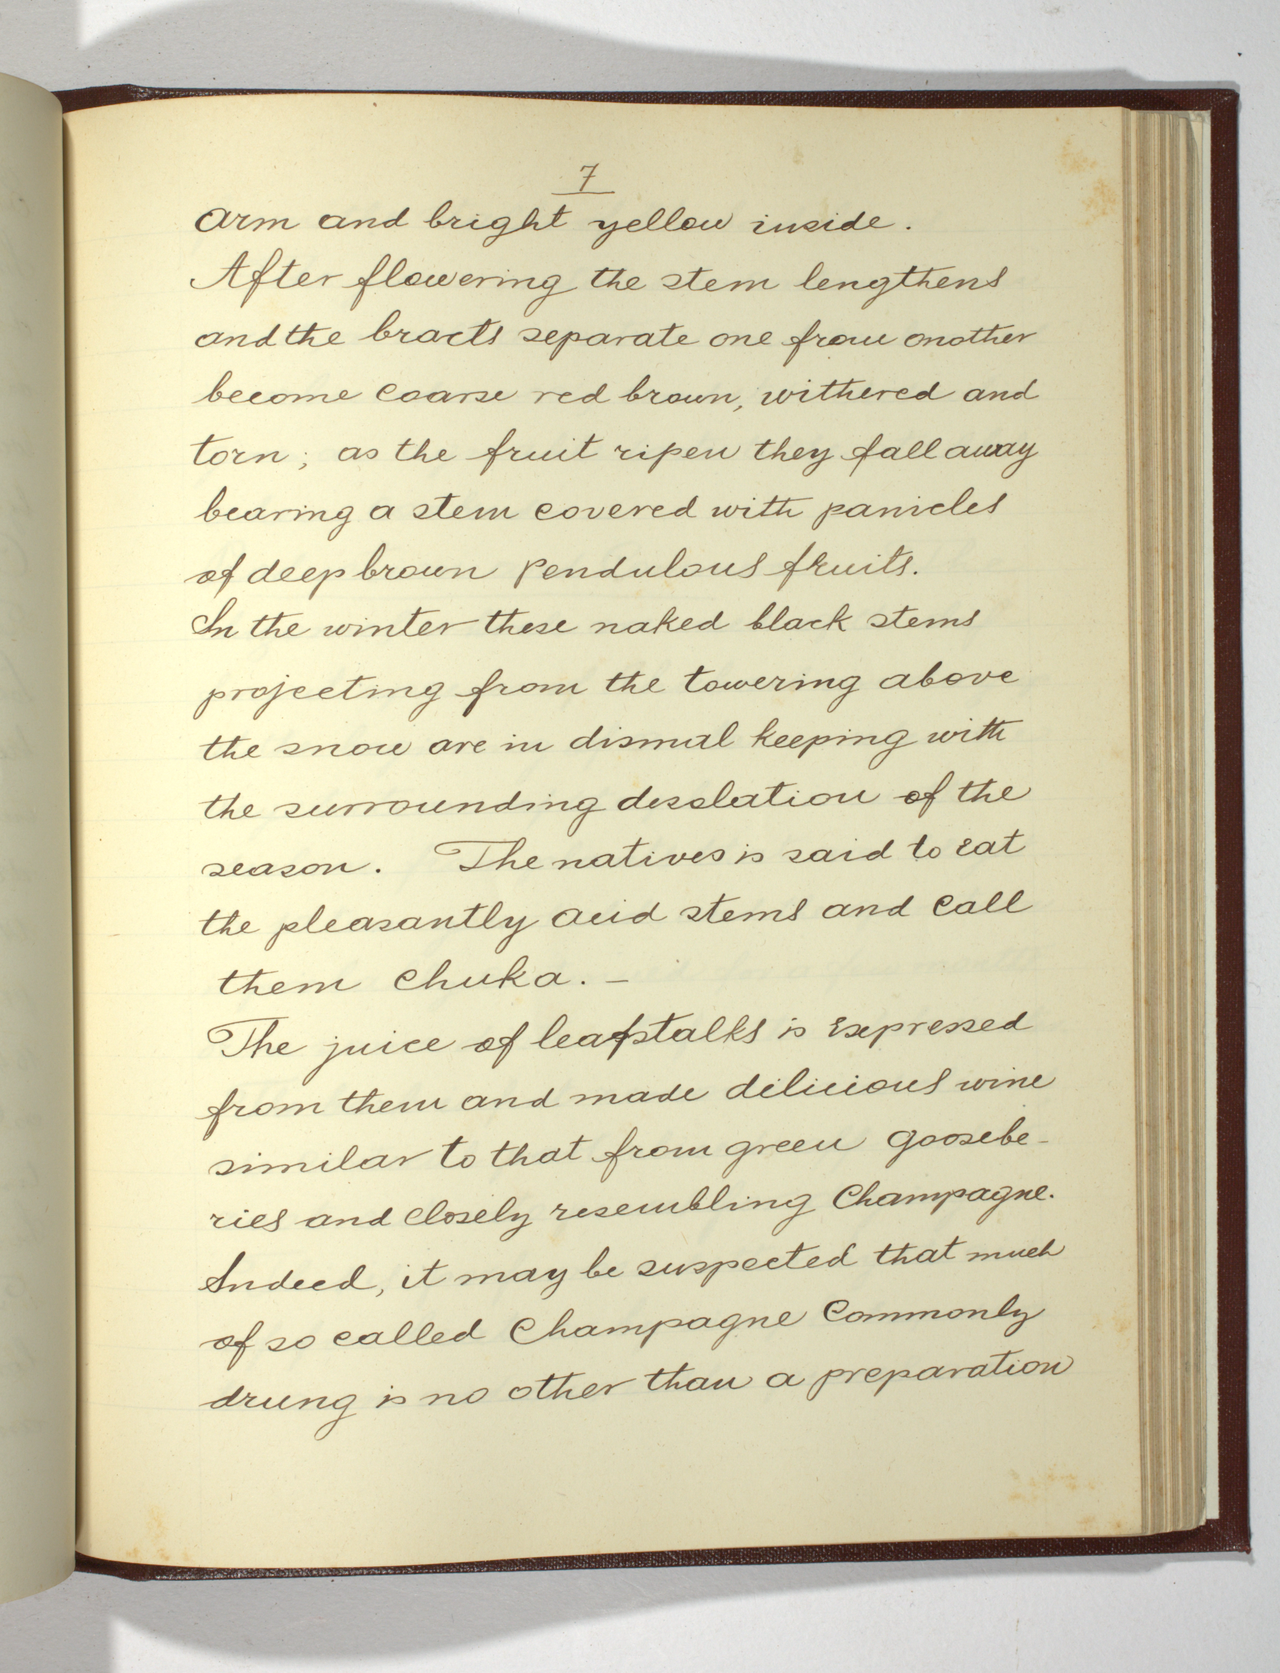 7
arm and bright yellow inside.
After flowering the stem lengthens
and the bracts separate one from another
become coarse red brown, withered and
torn; as the fruit ripen they fall away
bearing a stem covered with panicles
of deep brown pendulous fruits.
In the winter these naked black stems
projecting from the towering above
the snow are in dismal keeping with
the surrounding desolation of the
season. The natives is said to eat
the pleasantly acid stems and call
them Chuka. –
The juice of leafstalks is expressed
from them and made delicious wine
similar to that from green goosebe-
ries and closely resembling Champagne.
Indeed, it may be suspected that much
of so called Champagne commonly
drung is no other than a preparation